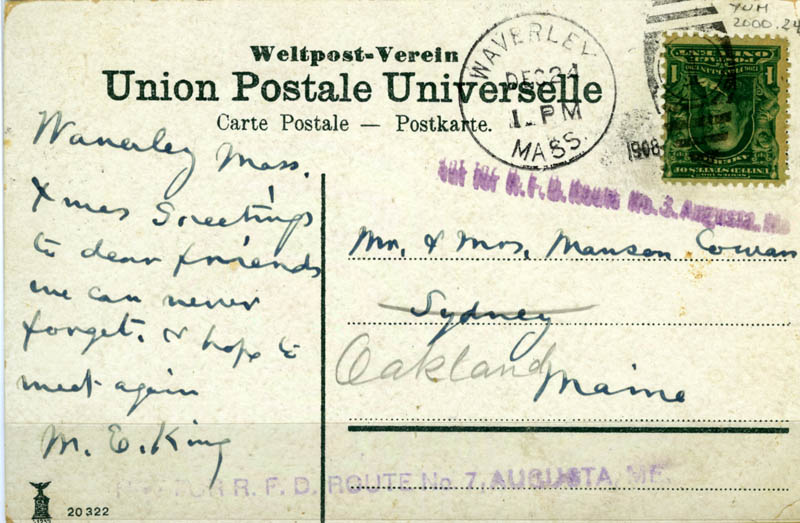 YUM
2000.24
Weltpost-Verein
Union Postale Universelle
Carte Postale — Postkarte.
WAVERLEY
DEC 24
1 PM
MASS.
1908
1
1
Not for R. F. D. Route No. 3. Augusta. Me
Waverley Mass.
Xmas Greetings
to dear friends
we can never
forget. & hope to
meet again
M. E. King
Mr. & Mrs. Manson Cowan
Sydney
Oakland Maine
FOR R. F. D. ROUTE No 7, AUGUSTA, ME.
20322